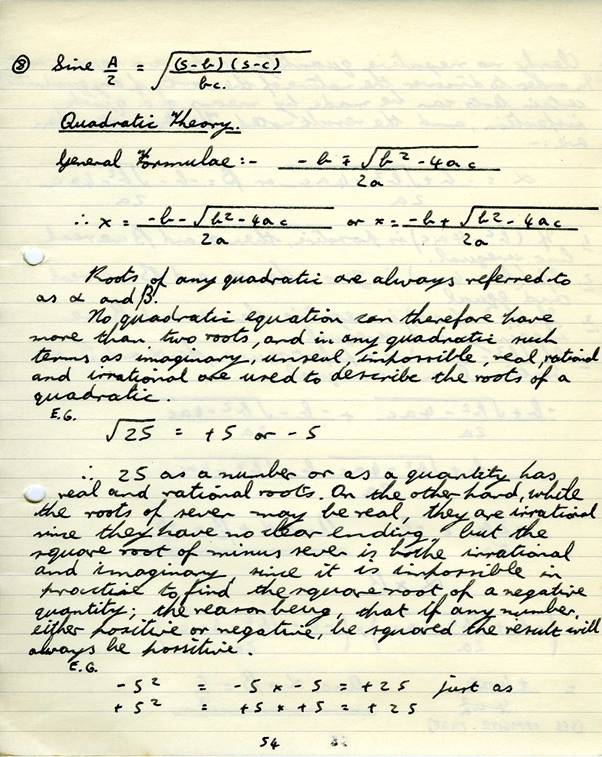 ⑧ Sine A/2 = √((s-b)(s-c)/bc.)
Quadratic Theory.
General Formulae:- (-b ∓ √(b² - 4ac))/2a
∴ x = (-b - √(b² - 4ac))/2a or x = (-b + √(b² - 4ac))/2a
Roots of any quadratic are always referred to
as α and β.
No quadratic equation can therefore have
more than two roots, and in any quadratic such
terms as imaginary, unreal, impossible, real, rational
and irrational are used to describe the roots of a
quadratic.
E.G.
√25 = +5 or -5
∴ 25 as a number or as a quantity has
real and rational roots. On the other hand, while
the roots of seven may be real, they are irrational
since they have no clear ending, but the
square root of minus seven is bothe irrational
and imaginary, since it is impossible in
practice to find the square root of a negative
quantity; the reason being, that if any number,
either positive or negative, be squared the result will
always be possitive.
E.G.
-5² = -5 × -5 = +25 just as
+5² = +5 × +5 = +25
54